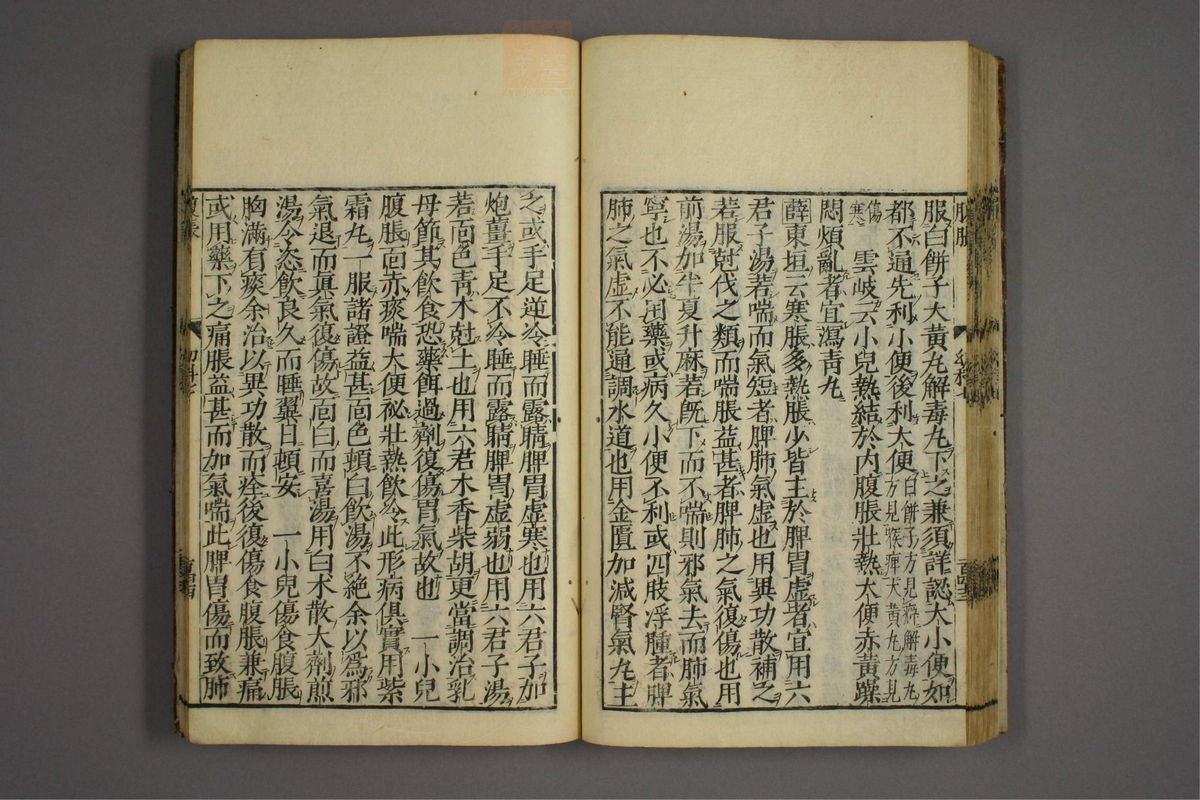 服白餅子大黃丸解毒丸下之兼須詳認大小便如
都不通先利小便後利大便白餅子方見癖解毒丸
方見喉痺大黃丸方見
傷寒　雲岐云小兒熱結於内腹脹壯熱大便赤黃躁
悶煩亂者宜瀉靑丸
薛東垣云寒脹多熱脹少皆主於脾胃虛者宜用六
君子湯若喘而氣短者脾肺氣虛也用異功散補之
若服尅伐之類而喘脹益甚者脾肺之氣復傷也用
前湯加半夏升麻若旣下而不喘則邪氣去而肺氣
寧也不必用藥或病久小便不利或四肢浮腫者脾
肺之氣虛不能通調水道也用金匱加減腎氣丸主
之或手足逆冷睡而露睛脾胃虛寒也用六君子加
炮薑手足不冷睡而露睛脾胃虛弱也用六君子湯
若面色靑木尅土也用六君木香柴胡更當調治乳
母節其飮食恐藥餌過劑復傷胃氣故也　一小兒
腹脹面赤痰喘大便祕壯熱飮冷此形病俱實用紫
霜丸一服諸證益甚面色頓白飮湯不絶余以爲邪
氣退而眞氣復傷故面白而喜湯用白朮散大劑煎
湯令恣飮良久而睡翼日頓安　一小兒傷食腹脹
胸滿有痰余治以異功散而痊後復傷食腹脹兼痛
或用藥下之痛脹益甚而加氣喘此脾胃傷而致肺